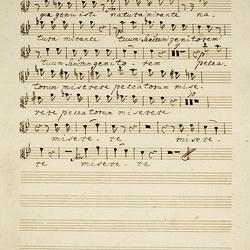 quae genuisti natura mirante na-
tura mirante tuum sanctum genitorem
tuum sanctum genito- rem pecca-
torum miserere peccatorum mise-
rere peccatorum miserere
miserere mise-
re re misere- re